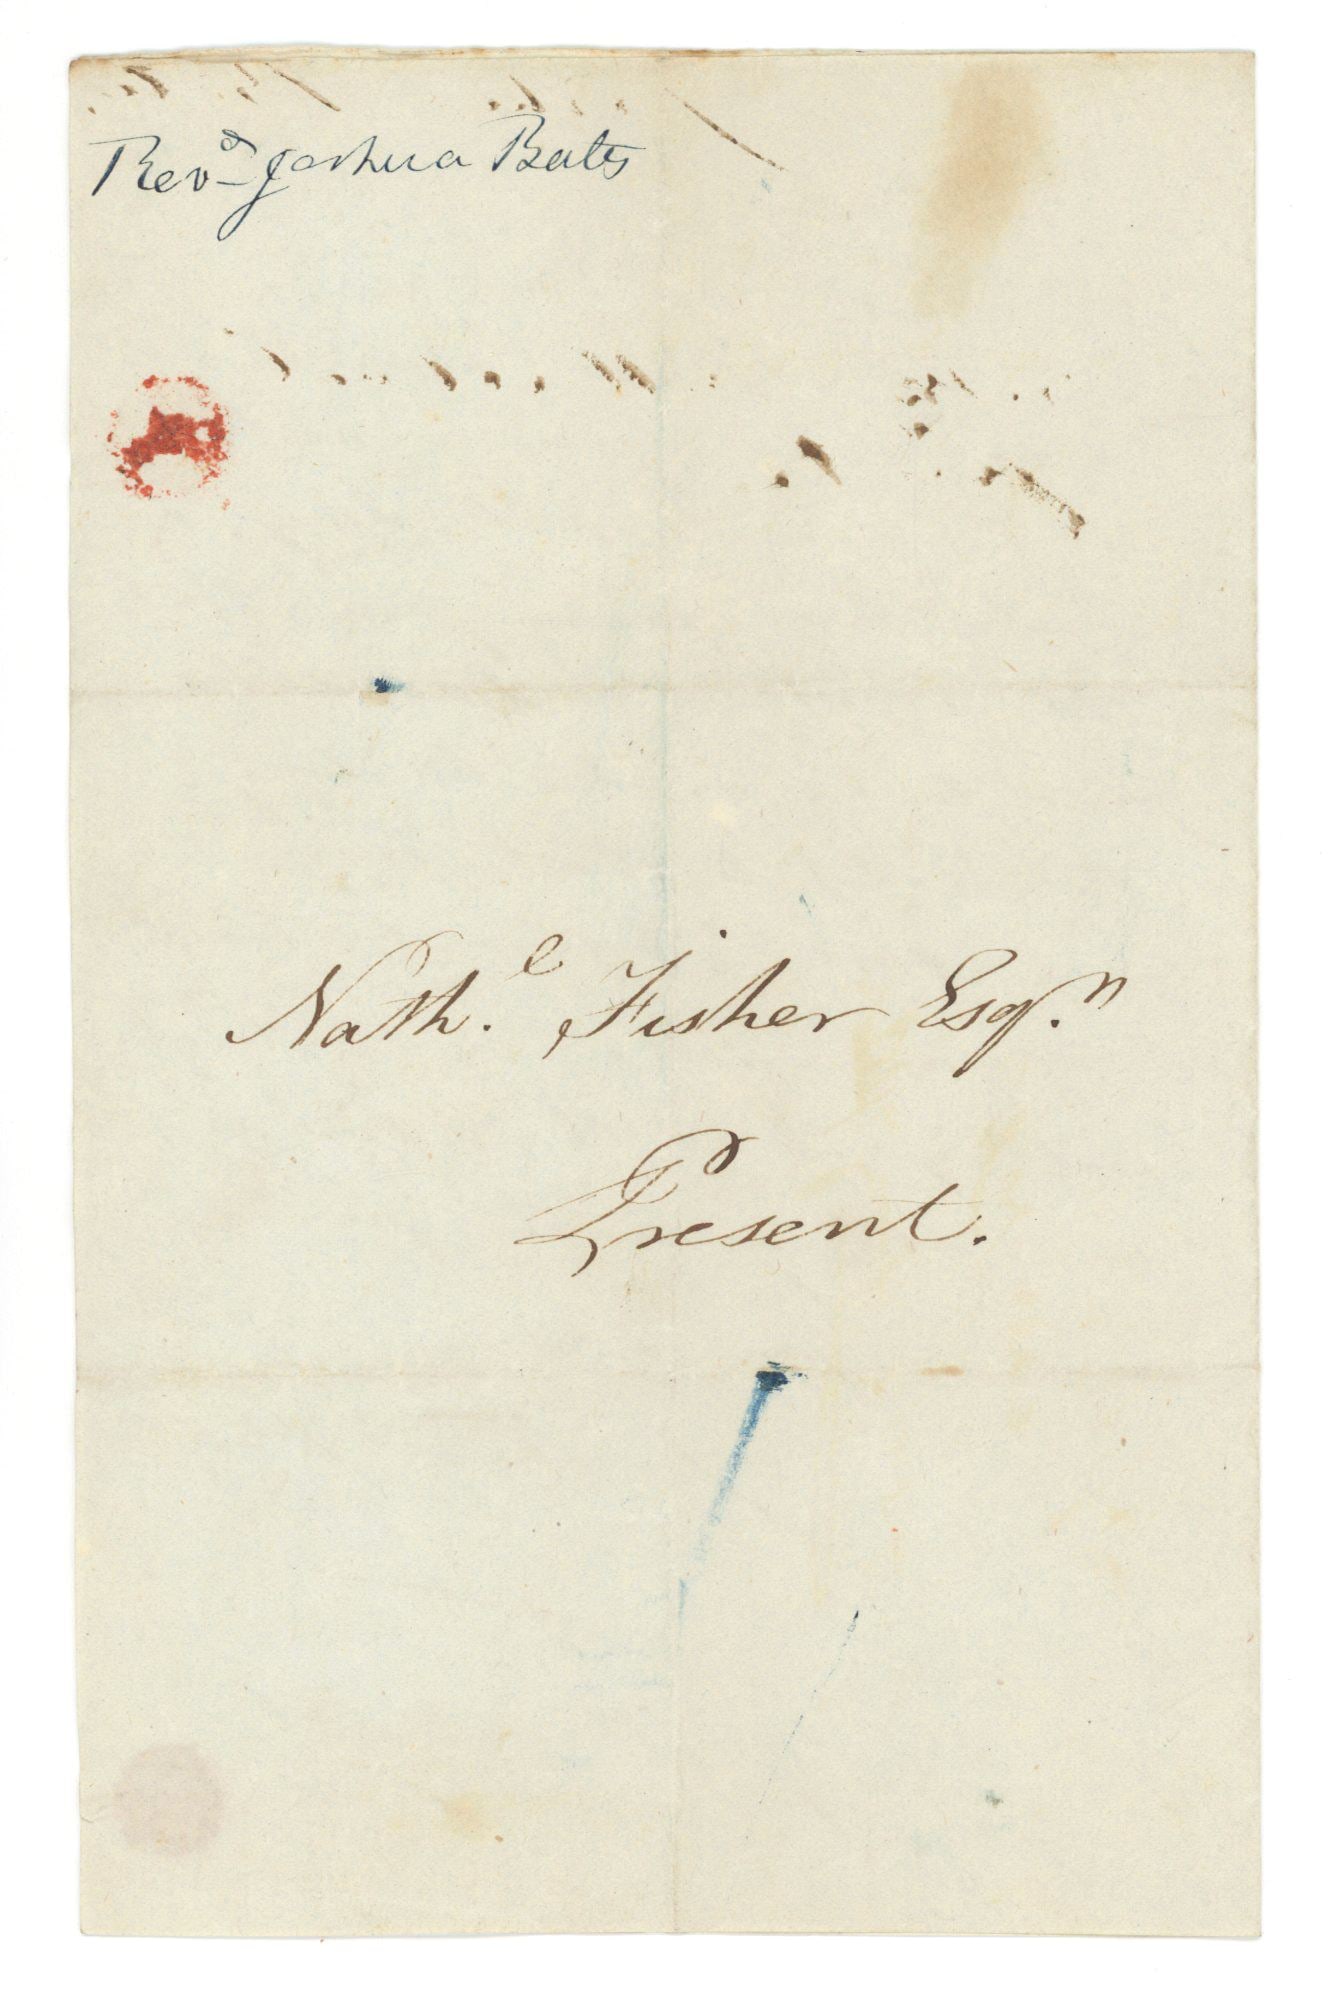 Revd Joshua Bates
Nath.l Fisher Esq.r
Present.